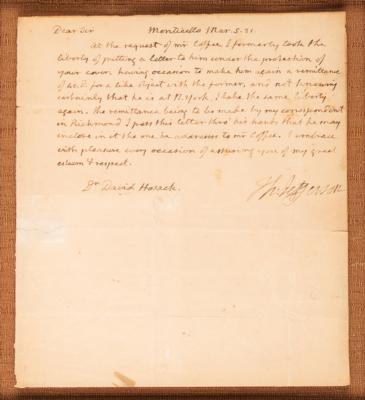 Dear Sir Monticello Mar. 5. 21
At the request of mr Coffee I formerly took the
liberty of putting a letter to him under the protection of
your cover. having occasion to make him again a remittance
of for a like object with the former, and not knowing
certainly that he is at N. York, I take the same liberty
again. the remittance being to be made by my correspondent
in Richmond I pass this letter thro' his hands that he may
inclose in it the one he addresses to mr Coffee. I embrace
with pleasure every occasion of assuring you of my great
esteem & respect.
Th: Jefferson
Dr. David Hosack.